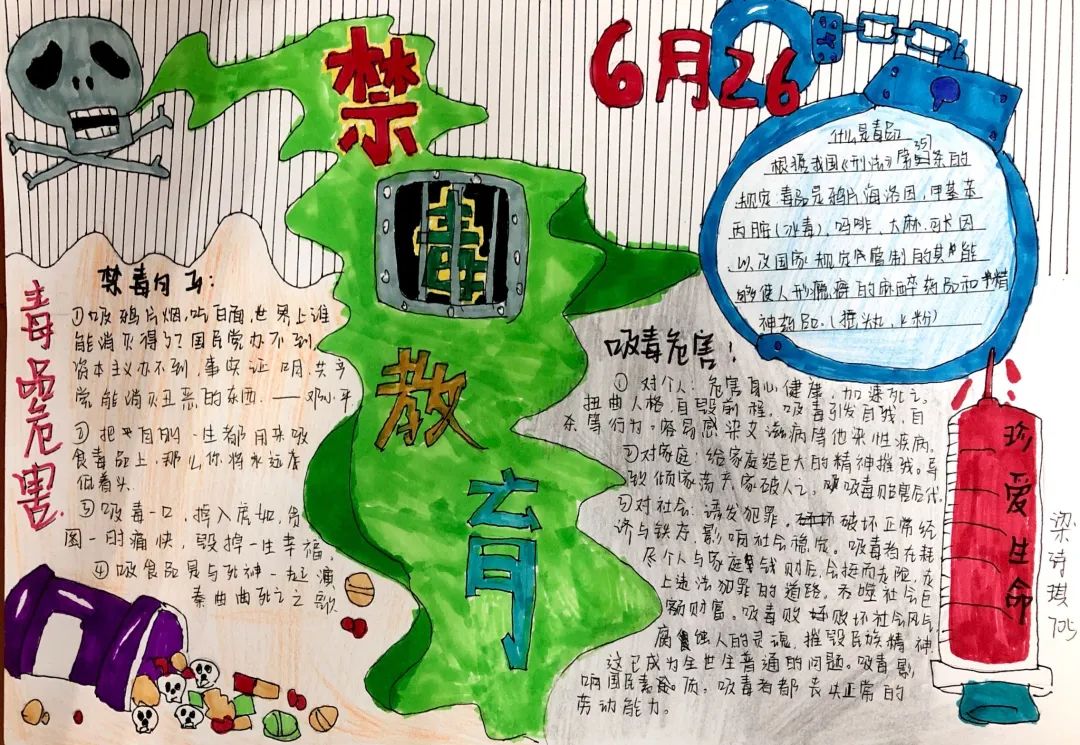 禁毒教育
6月26
毒品危害
禁毒句子:
①吸鸦片烟,吃白面,世界上谁
能消灭得了?国民党办不到,
资本主义办不到,事实证明,共产
党能消灭丑恶的东西.——邓小平
②把自
一生都用来吸
食毒品上,那么你将永远在
低着头
③吸毒一口,掉入虎口,贪
图一时痛快,毁掉一生幸福,
④吸食品是与死神一起演
奏曲曲死亡之歌
什么是毒品
根据我国《刑法》第357条的
规定毒品是鸦片海洛因,甲基苯
丙胺(冰毒),吗啡、大麻、可卡因
以及国家规定管制的其他能
够使人形成瘾癖的麻醉药品和精
神药品.(摇头丸,K粉)
吸毒危害!
①对个人:危害身心健康,加速死亡,
扭曲人格,自毁前程,吸毒引发自残,自
杀等行为。容易感染艾滋病等传染性疾病。
②对家庭:给家庭造巨大的精神摧残。导
致倾家荡产家破人亡,吸毒贻害后代
③对社会:诱发犯罪,破坏正常经
济与铁序,影响社会稳定。吸毒者在耗
尽个人与家庭钱财后,会挺而走险,走
上违法犯罪的道路,吞噬社会巨
额财富。吸毒败坏社会风气
腐蚀人的灵魂,摧毁民族精神
这已成为全世生普通的问题。吸毒影
响国民素质,吸毒者都丧失正常的
劳动能力。
珍爱生命
梁诗琪
705